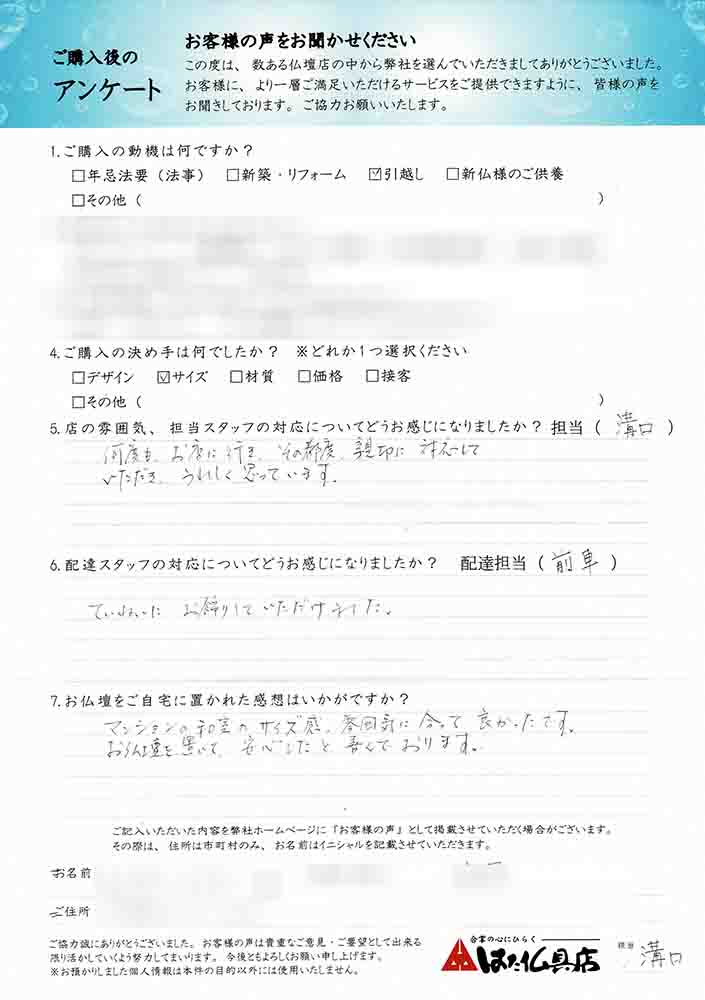 ご購入後の
アンケート
お客様の声をお聞かせください
この度は、数ある仏壇店の中から弊社を選んでいただきましてありがとうございました。
お客様に、より一層ご満足いただけるサービスをご提供できますように、皆様の声を
お聞きしております。ご協力お願いいたします。
1.ご購入の動機は何ですか？
□年忌法要（法事） □新築・リフォーム ☑引越し □新仏様のご供養
□その他（ ）
4.ご購入の決め手は何でしたか？ ※どれか1つ選択ください
□デザイン ☑サイズ □材質 □価格 □接客
□その他（ ）
5.店の雰囲気、担当スタッフの対応についてどうお感じになりましたか？ 担当（ 溝口 ）
何度も、お店に行き、その都度、親切に 対応して
いただき、うれしく思っています。
6.配達スタッフの対応についてどうお感じになりましたか？ 配達担当（ 前阜 ）
ていねいに お飾りして いただけました。
7.お仏壇をご自宅に置かれた感想はいかがですか？
マンションの和室の サイズ感、雰囲気に 合って 良かったです。
お仏壇を置いて、安心したと 喜んで おります。
ご記入いただいた内容を弊社ホームページに『お客様の声』として掲載させていただく場合がございます。
その際は、住所は市町村のみ、お名前はイニシャルを記載させていただきます。
お名前
ご住所
ご協力誠にありがとうございました。お客様の声は貴重なご意見・ご要望として出来る
限り活かしていくよう努力してまいります。今後ともよろしくお願い申し上げます。
※お預かりしました個人情報は本件の目的以外には使用いたしません。
合掌の心にひらく
はた仏具店
溝口